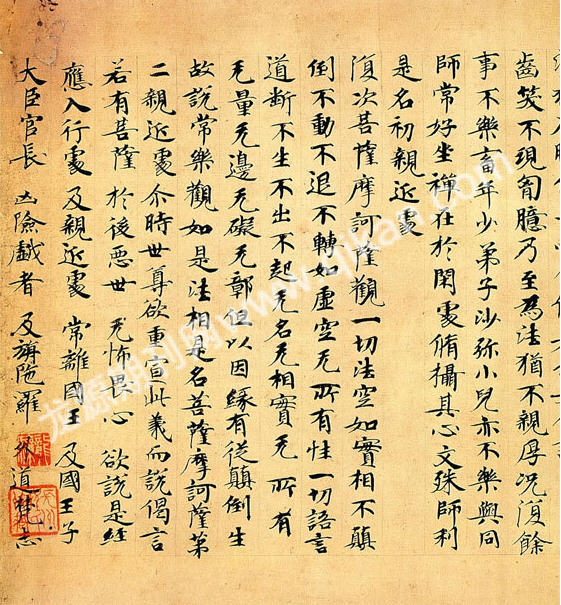 齒笑不現匈臆乃至為法猶不親厚況復餘
事不樂畜年少弟子沙弥小兒亦不樂與同
師常好坐禅在於閑處脩攝其心文殊師利
是名初親近處
復次菩薩摩訶薩觀一切法空如實相不顛
倒不動不退不轉如虛空无所有性一切語言
道斷不生不出不起无名无相實无所有
无量无邊无礙无鄣但以因緣有從顛倒生
故說常樂觀如是法相是名菩薩摩訶薩第
二親近處尒時世尊欲重宣此義而說偈言
若有菩薩 於後惡世 无怖畏心 欲說是經
應入行處 及親近處 常離國王 及國王子
大臣官長 凶險戲者 及旃陀羅 外道梵志
龙源期刊网www.qikan.com